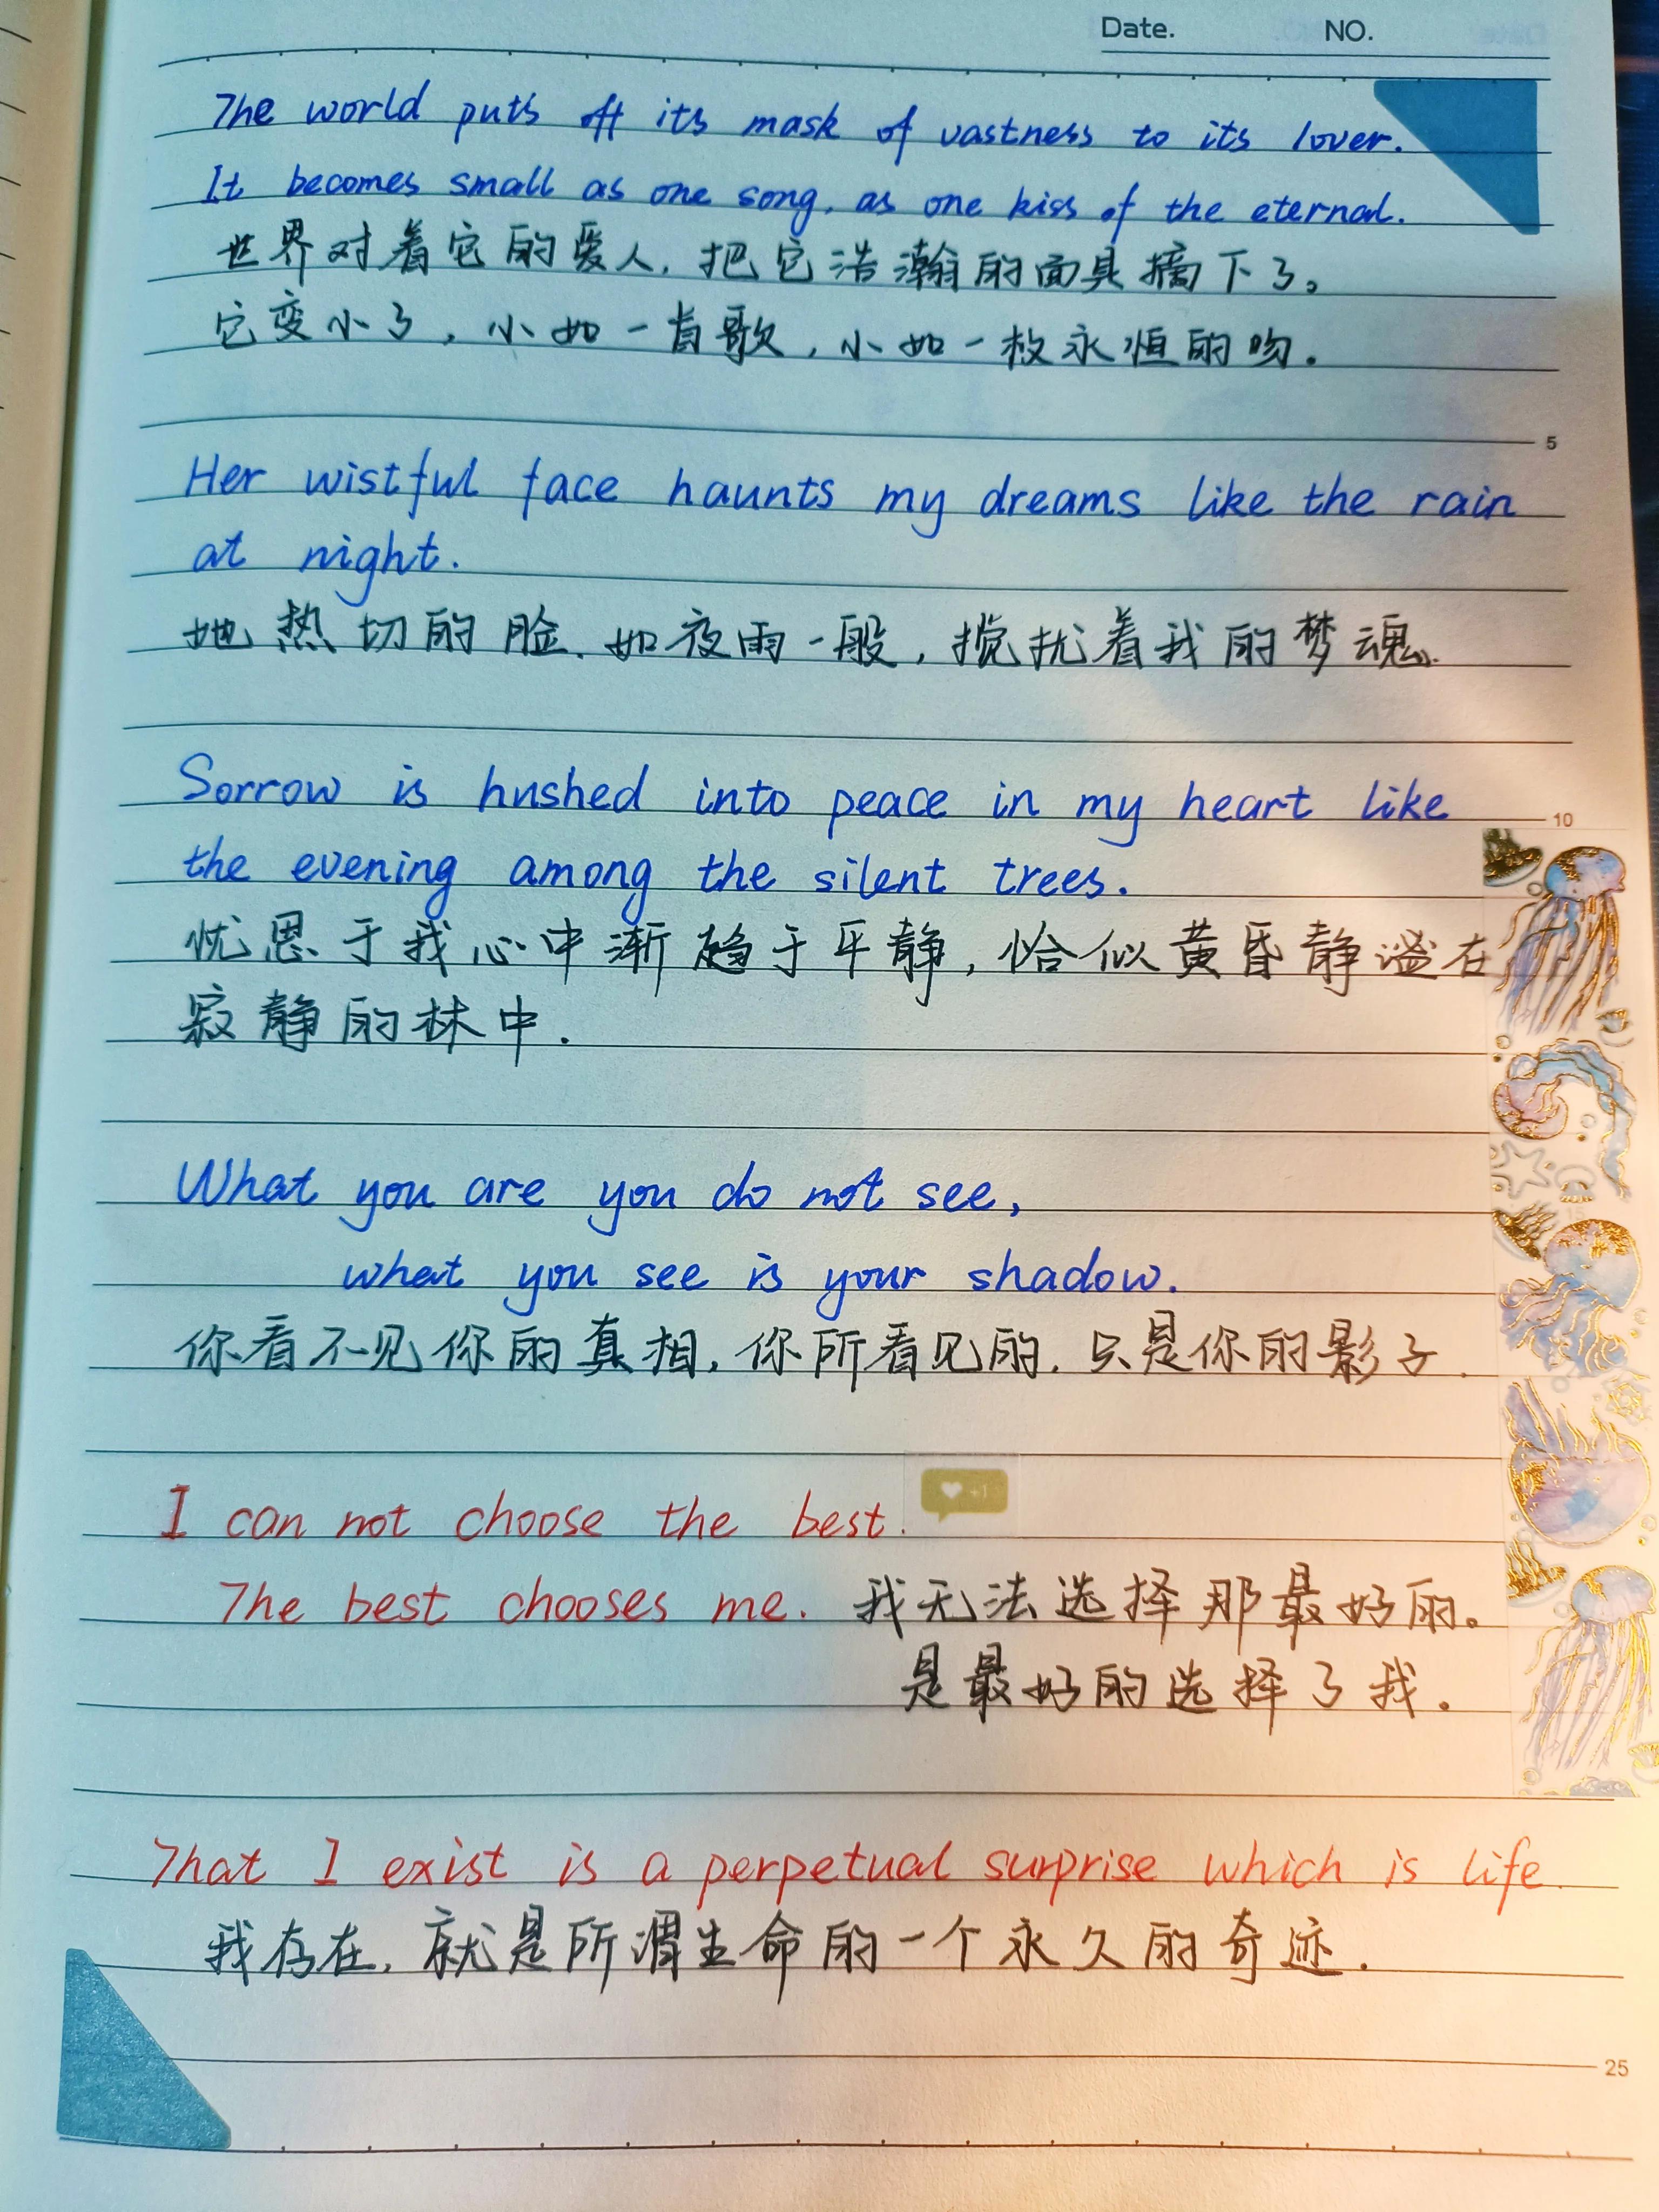 Date. NO.
The world puts off its mask of vastness to its lover.
It becomes small as one song, as one kiss of the eternal.
世界对着它的爱人，把它浩瀚的面具摘下了。
它变小了，小如一首歌，小如一枚永恒的吻.
5
Her wistful face haunts my dreams like the rain
at night.
她热切的脸、如夜雨一般，搅扰着我的梦魂.
Sorrow is hushed into peace in my heart like
10
the evening among the silent trees.
忧思于我心中渐趋于平静，恰似黄昏静谧在
寂静的林中.
What you are you do not see,
what you see is your shadow.
你看不见你的真相，你所看见的，只是你的影子.
I can not choose the best. +1
The best chooses me. 我无法选择那最好的。
是最好的选择了我.
That I exist is a perpetual surprise which is life.
我存在，就是所谓生命的一个永久的奇迹.
25